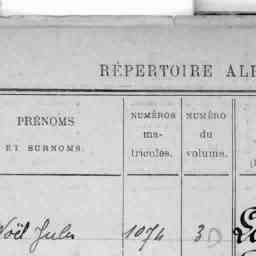 RÉPERTOIRE AL
PRÉNOMS
ET SURNOMS.
NUMÉROS
ma-
tricoles.
NUMÉRO
du
volume.
Noël Jules
1074
3